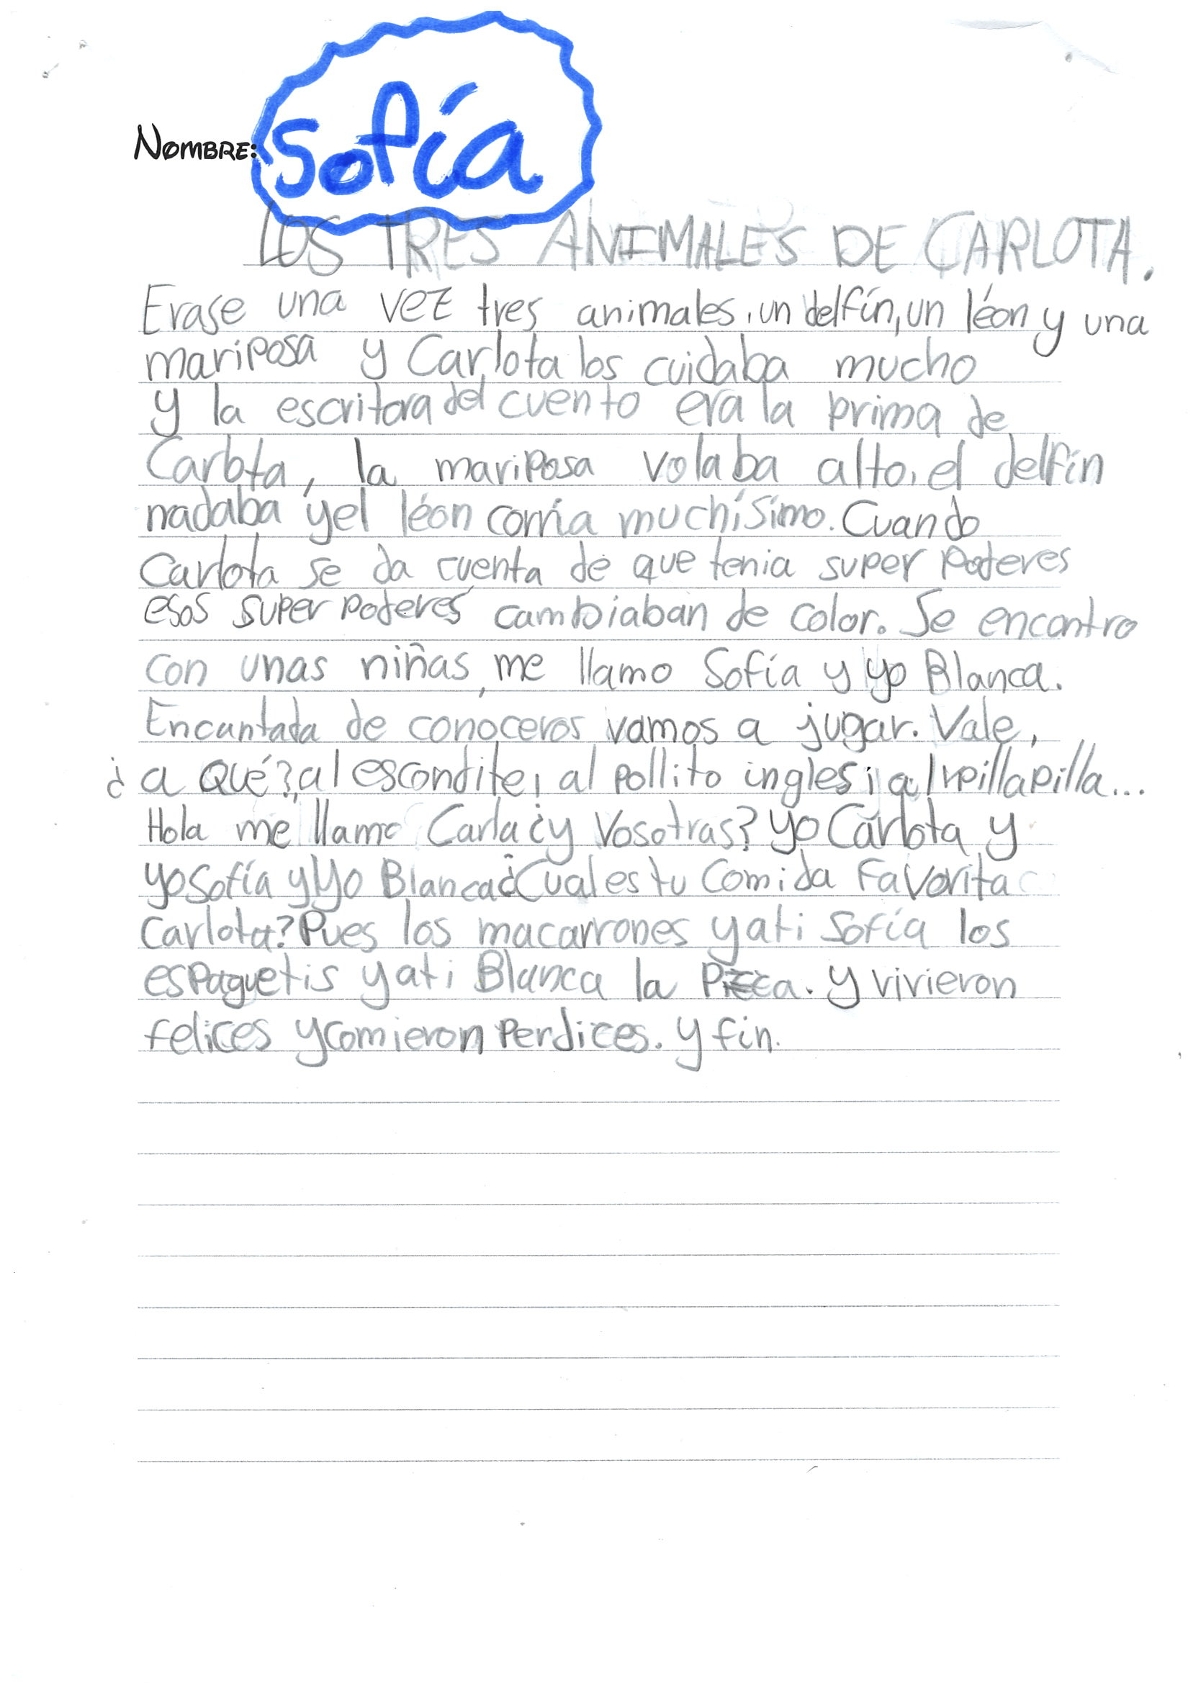 NOMBRE: Sofía
LOS TRES ANIMALES DE CARLOTA.
Erase una vez tres animales, un delfín, un léon y una
mariposa y Carlota los cuidaba mucho
y la escritora del cuento era la prima de
Carlota, la mariposa volaba alto, el delfín
nadaba y el léon corria muchísimo. Cuando
Carlota se da cuenta de que tenia super poderes
esos super poderes cambiaban de color. Se encontro
con unas niñas, me llamo Sofía y yo Blanca.
Encantada de conoceros vamos a jugar. Vale,
¿a Qué?, al escondite, al pollito ingles, al pillapilla...
Hola me llamo Carla ¿y Vosotras? yo Carlota y
yo Sofía y yo Blanca ¿Cual es tu Comida Favorita
Carlota? Pues los macarrones y a ti Sofía los
espaguetis y a ti Blanca la Pizza. y vivieron
felices y comieron Perdices. y fin.